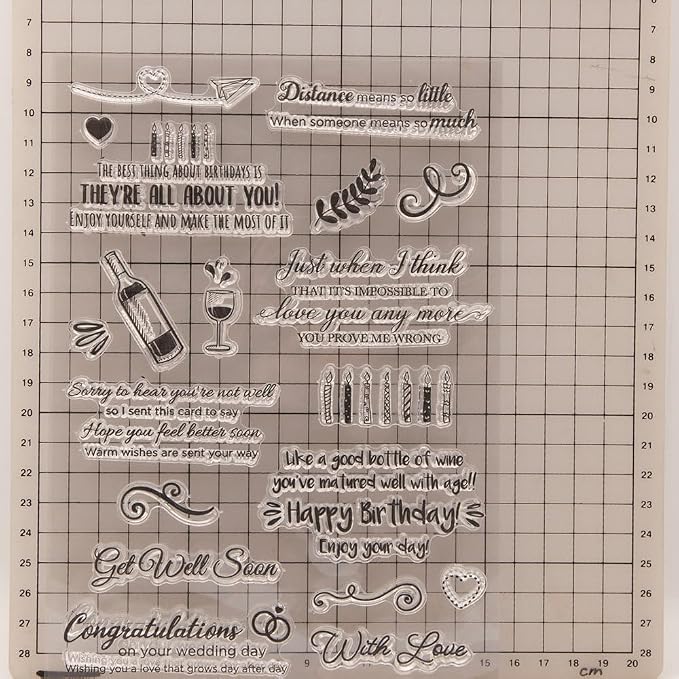 Distance means so little
When someone means so much
THE BEST THING ABOUT BIRTHDAYS IS
THEY'RE ALL ABOUT YOU!
ENJOY YOURSELF AND MAKE THE MOST OF IT
Just when I think
THAT IT'S IMPOSSIBLE TO
love you any more
YOU PROVE ME WRONG
Sorry to hear you're not well
so I sent this card to say
Hope you feel better soon
Warm wishes are sent your way
Like a good bottle of wine
you've matured well with age!!
Happy Birthday!
Enjoy your day!
Get Well Soon
Congratulations
on your wedding day
Wishing you a love that grows day after day
With Love
7
8
9
10
11
12
13
14
15
16
17
18
19
20
21
22
23
24
25
26
27
28
6
7
8
9
10
11
12
13
14
15
16
17
18
19
20
21
22
23
24
25
26
27
28
9
15
16
17
18
19
20
cm